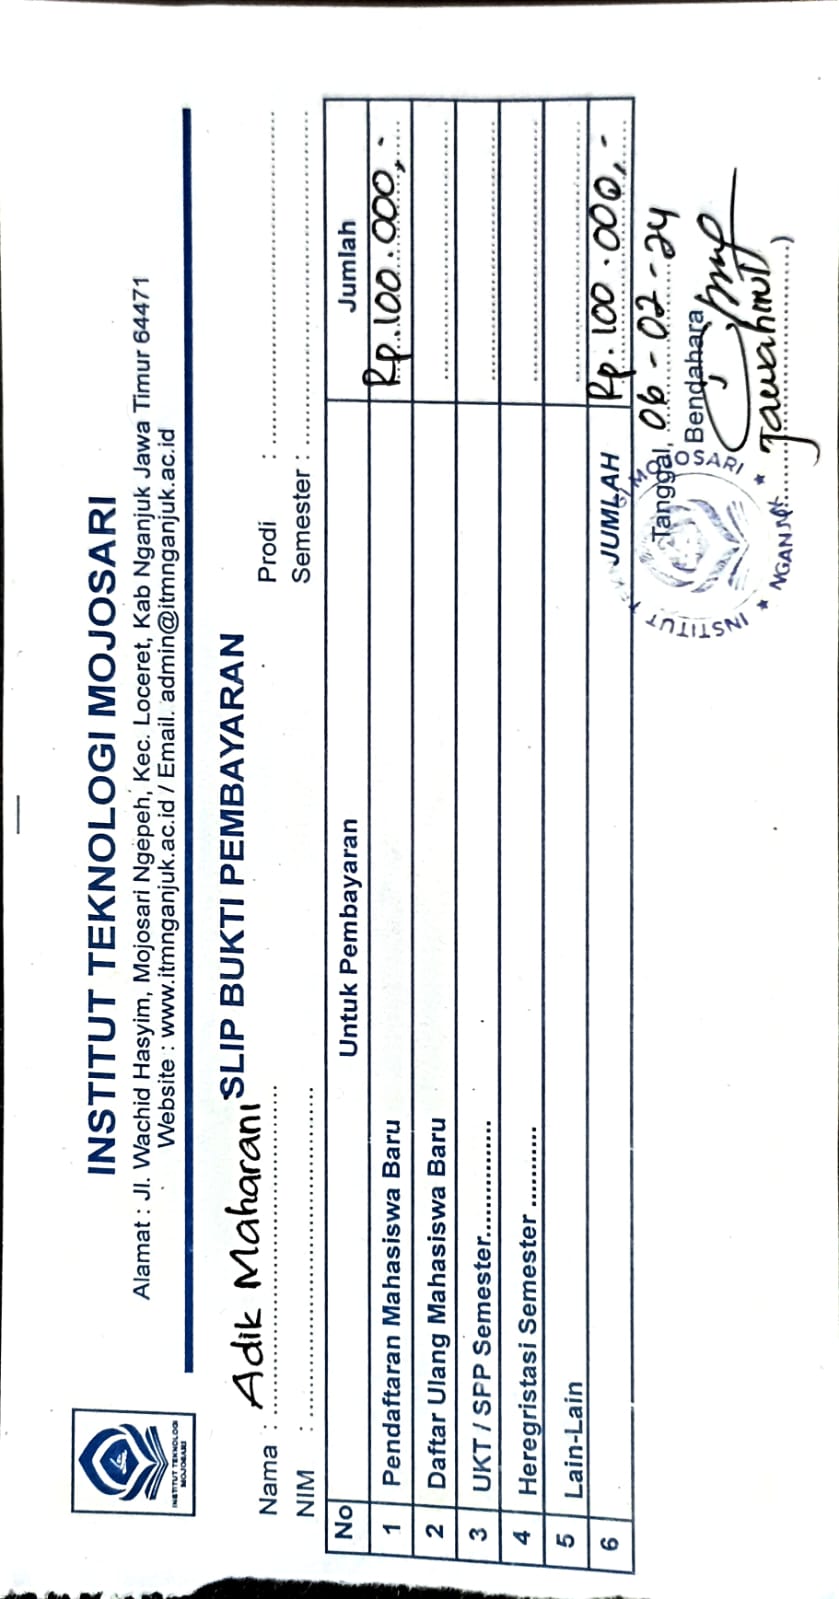 INSTITUT TEKNOLOGI MOJOSARI
INSTITUT TEKNOLOGI MOJOSARI
Alamat : Jl. Wachid Hasyim, Mojosari Ngepeh, Kec. Loceret, Kab Nganjuk Jawa Timur 64471
Website : www.itmnganjuk.ac.id / Email. admin@itmnganjuk.ac.id
SLIP BUKTI PEMBAYARAN
Nama : Adik Maharani Prodi :
NIM : Semester :
No Untuk Pembayaran Jumlah
1 Pendaftaran Mahasiswa Baru Rp.100.000,-
2 Daftar Ulang Mahasiswa Baru
3 UKT / SPP Semester
4 Heregristasi Semester
5 Lain-Lain
6 JUMLAH Rp. 100.000,-
Tanggal, 06-02-24
Bendahara
INSTITUT MOJOSARI NGANJUK